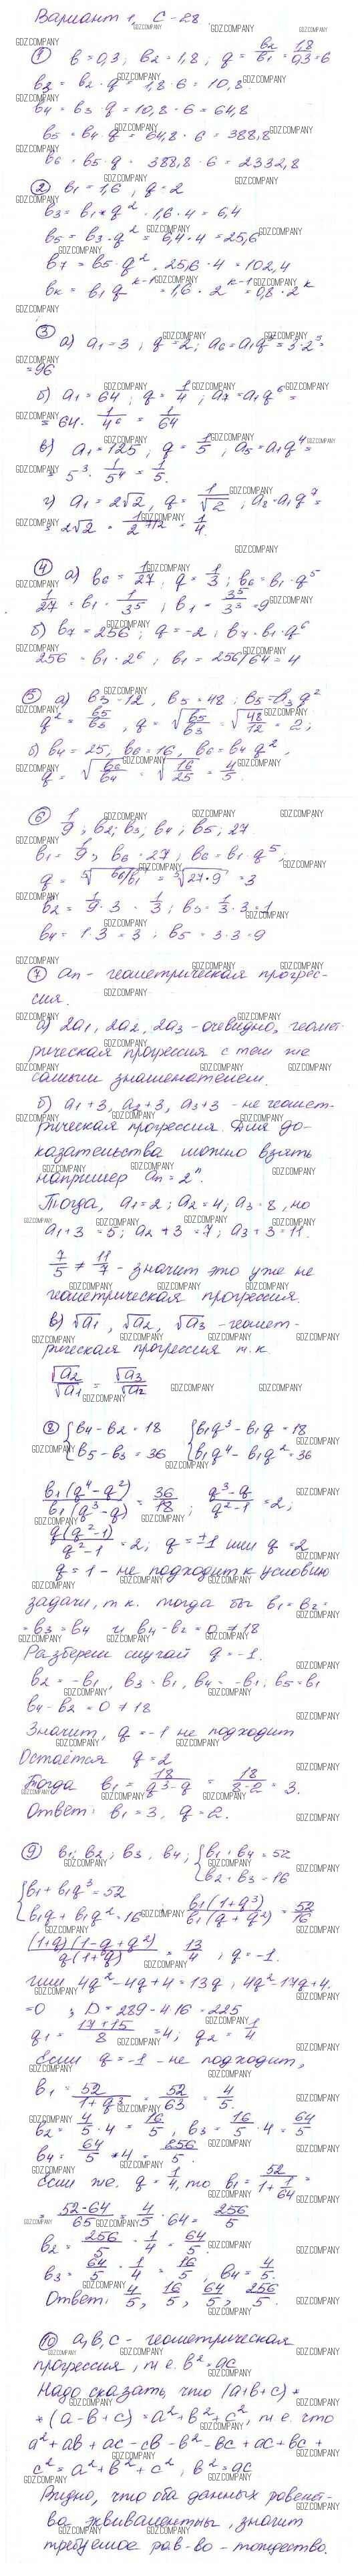 Вариант 1, С-28
① b = 0,3, b₂ = 1,8, q = b₂/b₁ = 1,8/0,3 = 6
b₃ = b₂·q = 1,8·6 = 10,8
b₄ = b₃·q = 10,8·6 = 64,8
b₅ = b₄·q = 64,8·6 = 388,8
b₆ = b₅·q = 388,8·6 = 2332,8
② b₁ = 1,6, q = 2
b₃ = b₁·q² = 1,6·4 = 6,4
b₅ = b₃·q² = 6,4·4 = 25,6
b₇ = b₅·q² = 25,6·4 = 102,4
bₖ = b₁q^(k-1) = 1,6·2^(k-1) = 0,8·2^k
③ а) a₁ = 3, q = 2; a₆ = a₁q⁵ = 3·2⁵ =
= 96
б) a₁ = 64, q = 1/4, a₇ = a₁q⁶ =
= 64·1/4⁶ = 1/64
в) a₁ = 125, q = 1/5, a₅ = a₁q⁴ =
= 5³·1/5⁴ = 1/5.
г) a₁ = 2√2, q = 1/√2, a₈ = a₁q⁷ =
= 2√2·1/2^(7/2) = 1/4.
④ а) b₆ = 1/27, q = 1/3; b₆ = b₁·q⁵
1/27 = b₁·1/3⁵, b₁ = 3⁵/3³ = 9
б) b₇ = 256, q = -2, b₇ = b₁·q⁶
256 = b₁·2⁶, b₁ = 256/64 = 4
⑤ а) b₃ = 12, b₅ = 48; b₅ = b₃q²
q² = b₅/b₃, q = √(b₅/b₃) = √(48/12) = 2;
б) b₄ = 25, b₆ = 16, b₆ = b₄q²,
q = √(b₆/b₄) = √(16/25) = 4/5.
⑥ 1/9; b₂; b₃; b₄; b₅; 27
b₁ = 1/9; b₆ = 27; b₆ = b₁·q⁵;
q = ⁵√(b₆/b₁) = ⁵√(27·9) = 3
b₂ = 1/9·3 = 1/3; b₃ = 1/3·3 = 1
b₄ = 1·3 = 3; b₅ = 3·3 = 9
⑦ aₙ - геометрическая прогрес-
сия.
а) 2a₁, 2a₂, 2a₃ - очевидно, геомет-
рическая прогрессия с тем же
самым знаменателем.
б) a₁+3, a₂+3, a₃+3 - не геомет-
рическая прогрессия. Для до-
казательства можно взять
например aₙ = 2ⁿ.
Тогда, a₁ = 2; a₂ = 4; a₃ = 8, но
a₁+3 = 5; a₂+3 = 7; a₃+3 = 11.
7/5 ≠ 11/7 - значит это уже не
геометрическая прогрессия.
в) √a₁, √a₂, √a₃ - геомет-
рическая прогрессия т.к.
√a₂/√a₁ = √a₃/√a₂
⑧ {b₄-b₂ = 18 {b₁q³-b₁q = 18
{b₅-b₃ = 36 {b₁q⁴-b₁q² = 36
b₁(q⁴-q²)/b₁(q³-q) = 36/18; q³-q/q²-1 = 2;
q(q²-1)/q²-1 = 2; q = ±1 или q = 2
q = 1 - не подходит к условию
задачи, т.к. тогда бы b₁ = b₂ =
= b₃ = b₄ и b₄-b₂ = 0 ≠ 18
Разберем случай q = -1.
b₂ = -b₁, b₃ = b₁, b₄ = -b₁; b₅ = b₁
b₄-b₂ = 0 ≠ 18
Значит, q = -1 не подходит
Остаётся q = 2
Тогда b₁ = 18/(q³-q) = 18/(8-2) = 3.
Ответ: b₁ = 3, q = 2.
⑨ b₁; b₂; b₃, b₄; {b₁+b₄ = 52
{b₂+b₃ = 16
{b₁+b₁q³ = 52
{b₁q+b₁q² = 16; b₁(1+q³)/b₁(q+q²) = 52/16
(1+q)(1-q+q²)/q(1+q) = 13/4, q = -1.
или 4q²-4q+4 = 13q, 4q²-17q+4
= 0; D = 289-4·16 = 225
q₁ = (17+15)/8 = 4; q₂ = 1/4
Если q = -1 - не подходит,
b₁ = 52/(1+q³) = 52/63 = 4/5
b₂ = 4/5·4 = 16/5, b₃ = 16/5·4 = 64/5
b₄ = 64/5·4 = 256/5.
Если же q = 1/4, то b₁ = 52/(1+1/64) =
= 52·64/65 = 4/5·64 = 256/5
b₂ = 256/5·1/4 = 64/5.
b₃ = 64/5·1/4 = 16/5, b₄ = 4/5.
Ответ: 4/5, 16/5, 64/5, 256/5.
⑩ a, b, c - геометрическая
прогрессия, т.е. b² = ac
Надо сказать, что (a+b+c)*
*(a-b+c) = a²+b²+c², т.е. что
a²+ab+ac-cb-b²-bc+ac+bc+
c² = a²+b²+c², b² = ac
Видно, что оба данных равенст-
ва эквивалентны, значит
требуемое рав-во - тождество.
GDZ.COMPANY